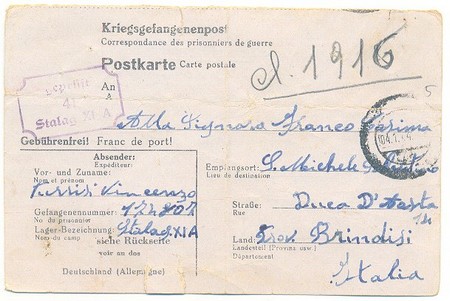 Kriegsgefangenenpost
Correspondance des prisonniers de guerre
Postkarte Carte postale
cl. 1916
5
An
A
geprüft
41
Stalag XI A
Alla Signora Franco
Gebührenfrei! Franc de port!
Absender:
Expéditeur:
Vor- und Zuname:
Nom et prénom
Vincenzo
Gefangenennummer:
No du prisonnier
Lager-Bezeichnung: Stalag XIA
Nom du camp
siehe Rückseite
voir au dos
Deutschland (Allemagne)
Empfangsort: S. Michele
Lieu de destination
Straße: Duca D'Aosta
Rue
Land: Prov Brindisi
Landesteil (Provinz usw.)
Département
Italia